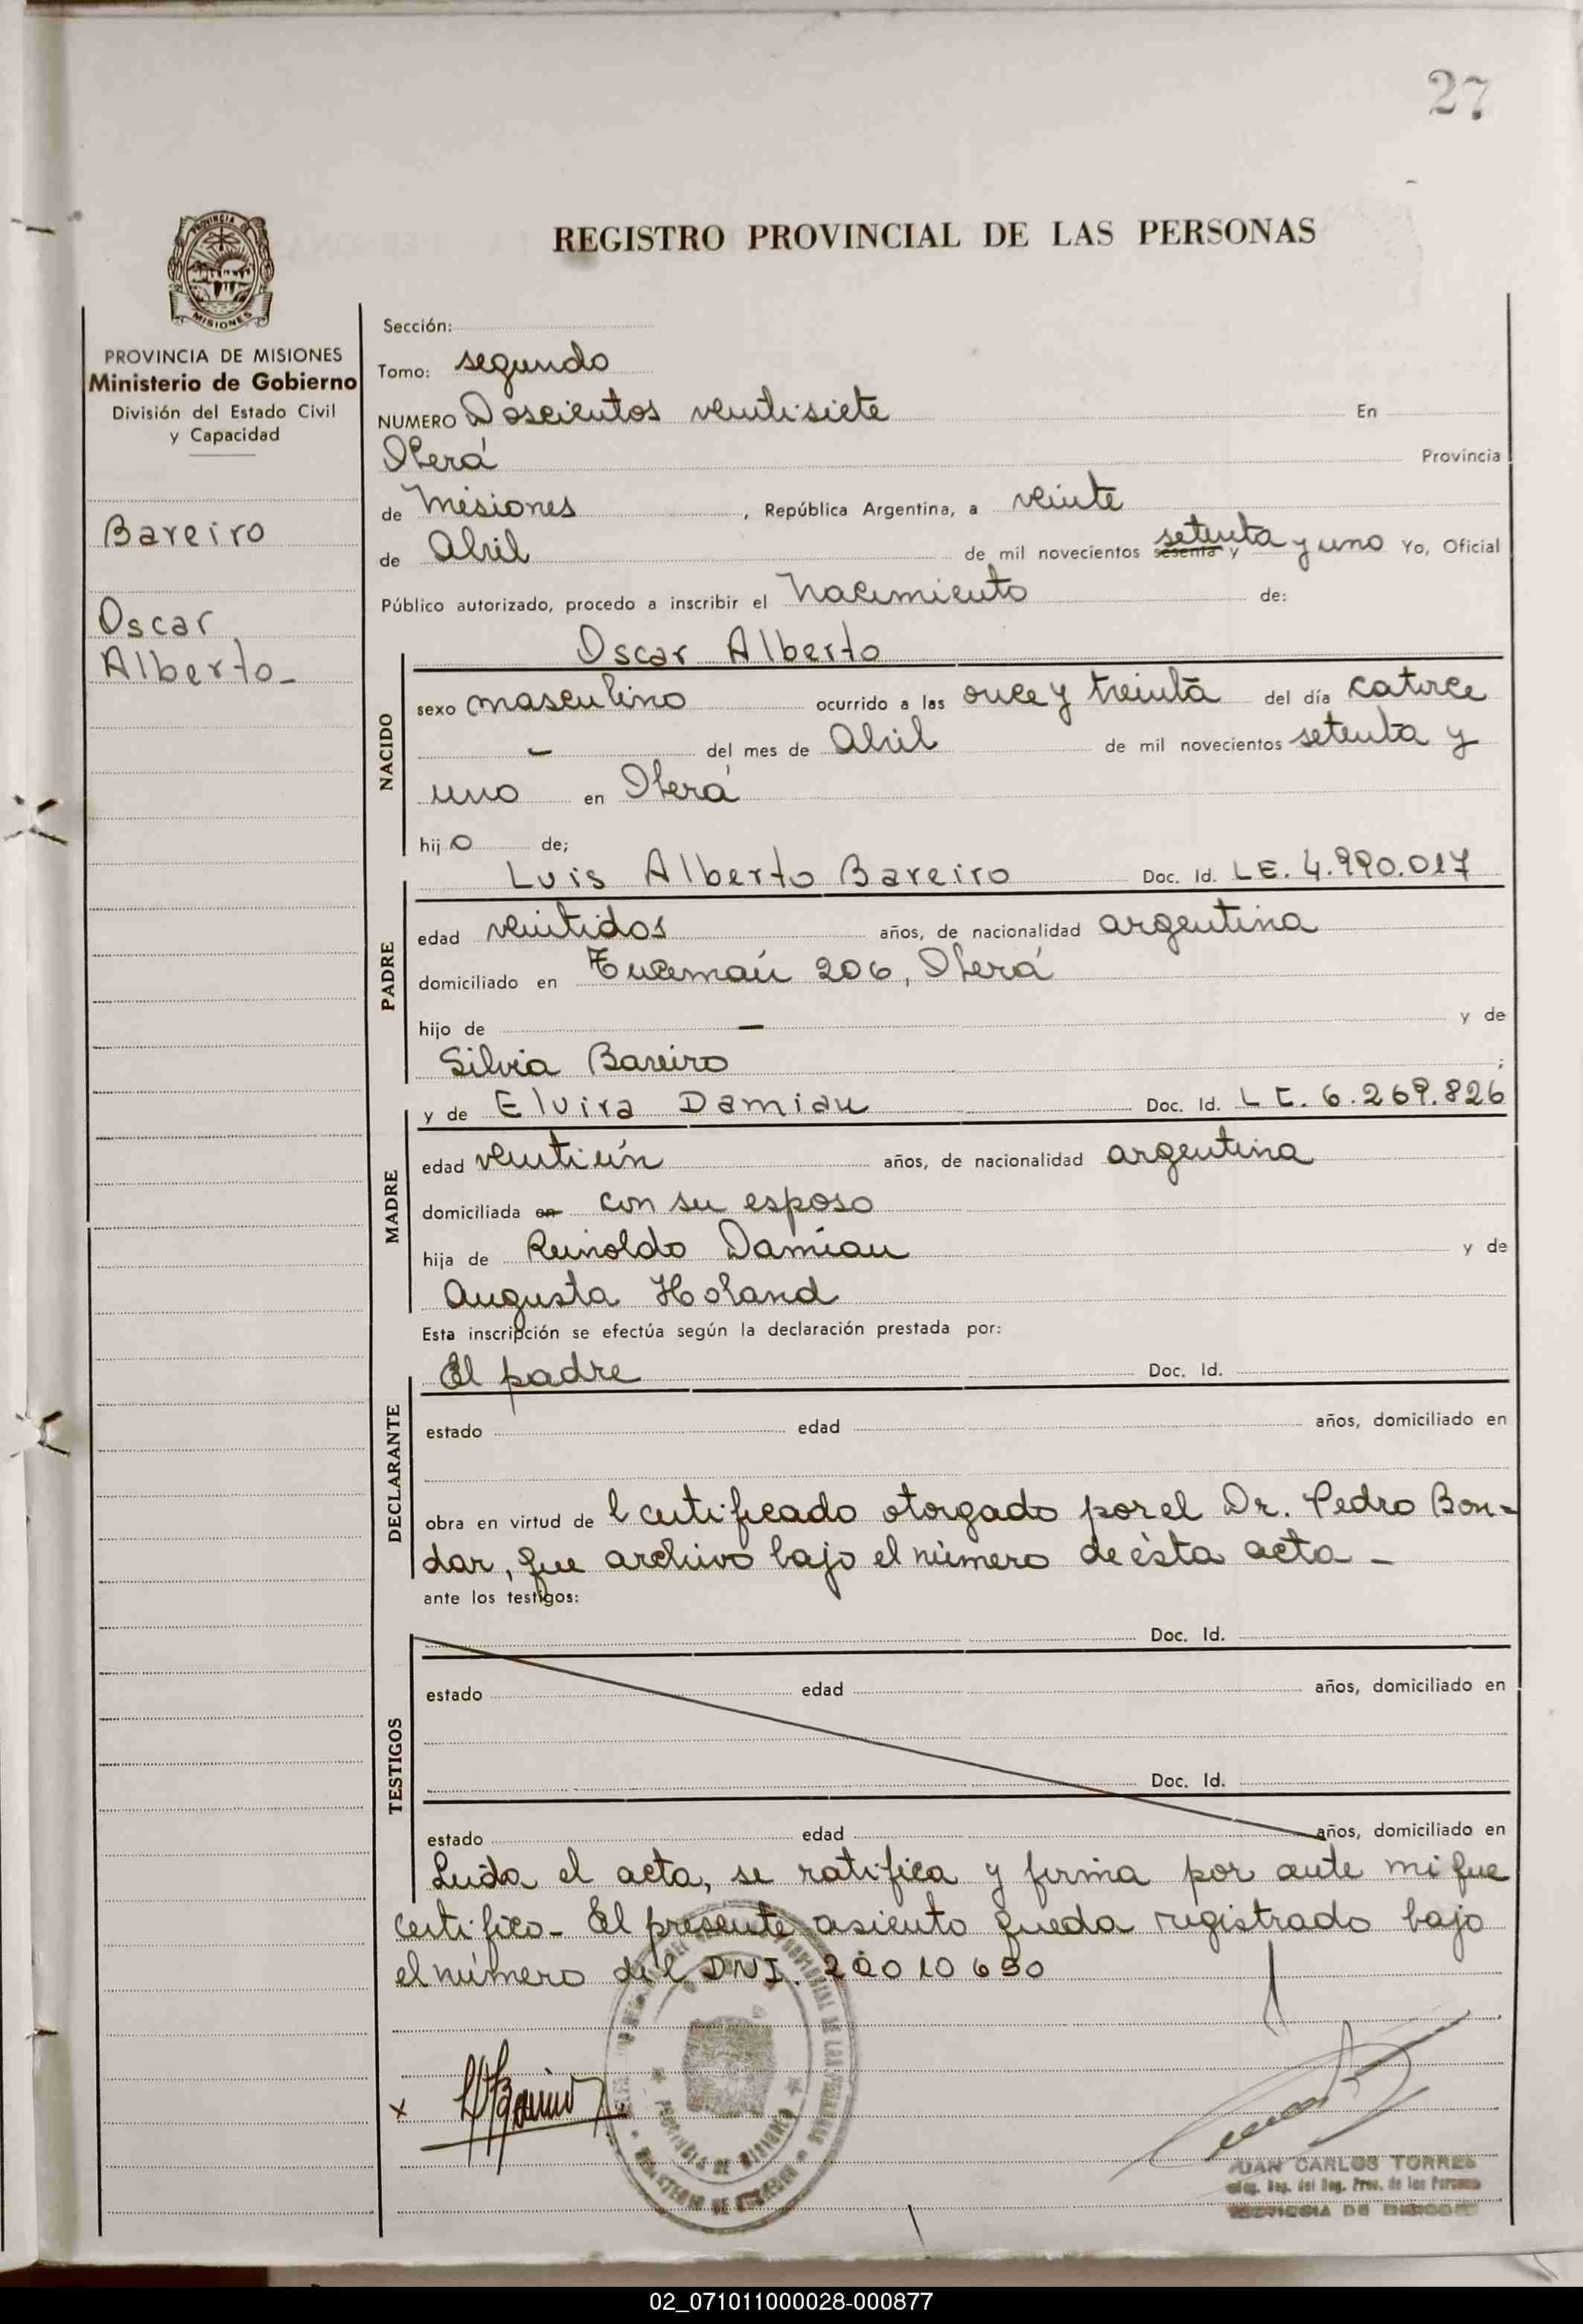 27
REGISTRO PROVINCIAL DE LAS PERSONAS
PROVINCIA
MISIONES
PROVINCIA DE MISIONES
Ministerio de Gobierno
División del Estado Civil
y Capacidad
Bareiro
Oscar
Alberto-
Sección:
Tomo: segundo
NUMERO Doscientos veintisiete En
Oberá Provincia
de Misiones, República Argentina, a veinte
de Abril de mil novecientos sesenta y setenta y uno Yo, Oficial
Público autorizado, procedo a inscribir el Nacimiento de:
NACIDO
Oscar Alberto
sexo masculino ocurrido a las once y treinta del día catorce
- del mes de Abril de mil novecientos setenta y
uno en Oberá
hijo de;
PADRE
Luis Alberto Bareiro Doc. Id. LE. 4.990.017
edad veintidos años, de nacionalidad argentina
domiciliado en Tucumán 206, Oberá
hijo de - y de
Silvia Bareiro ;
MADRE
y de Elvira Damian Doc. Id. LC. 6.269.826
edad veintiún años, de nacionalidad argentina
domiciliada en con su esposo
hija de Reinoldo Damian y de
Augusta Holand
Esta inscripción se efectúa según la declaración prestada por:
DECLARANTE
El padre Doc. Id.
estado edad años, domiciliado en
obra en virtud de l certificado otorgado por el Dr. Pedro Bon=
dar, que archivo bajo el número de ésta acta -
ante los testigos:
TESTIGOS
Doc. Id.
estado edad años, domiciliado en
Doc. Id.
estado edad años, domiciliado en
Leida el acta, se ratifica y firma por ante mi que
certifico- El presente asiento queda registrado bajo
el número del DNI. 22010650
x
PROVINCIA DE MISIONES
JUAN CARLOS TORRES
del Reg. Prov. de las Personas
PROVINCIA DE MISIONES
02_071011000028-000877